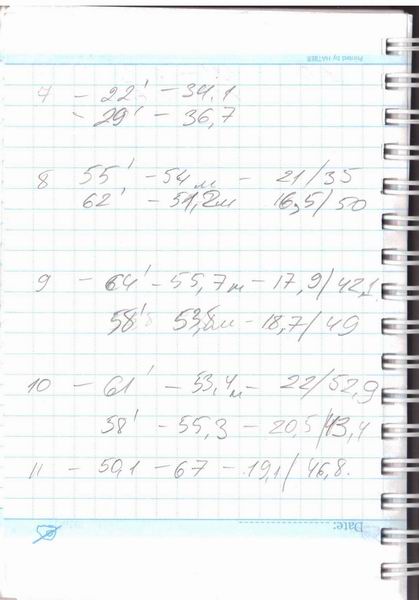 Printed by HATBER
7 - 22' - 34,1
- 29' - 36,7
8 55' - 54 м - 21/35
62' - 51,2м 16,5/50
9 - 64' - 55,7м - 17,9/42,1
58' 53,8м - 18,7/49
10 - 61' - 53,4м - 22/52,9
58' - 55,3 - 20,5/43,4
11 - 50,1 - 67 - 19,1/46,8.
Date: